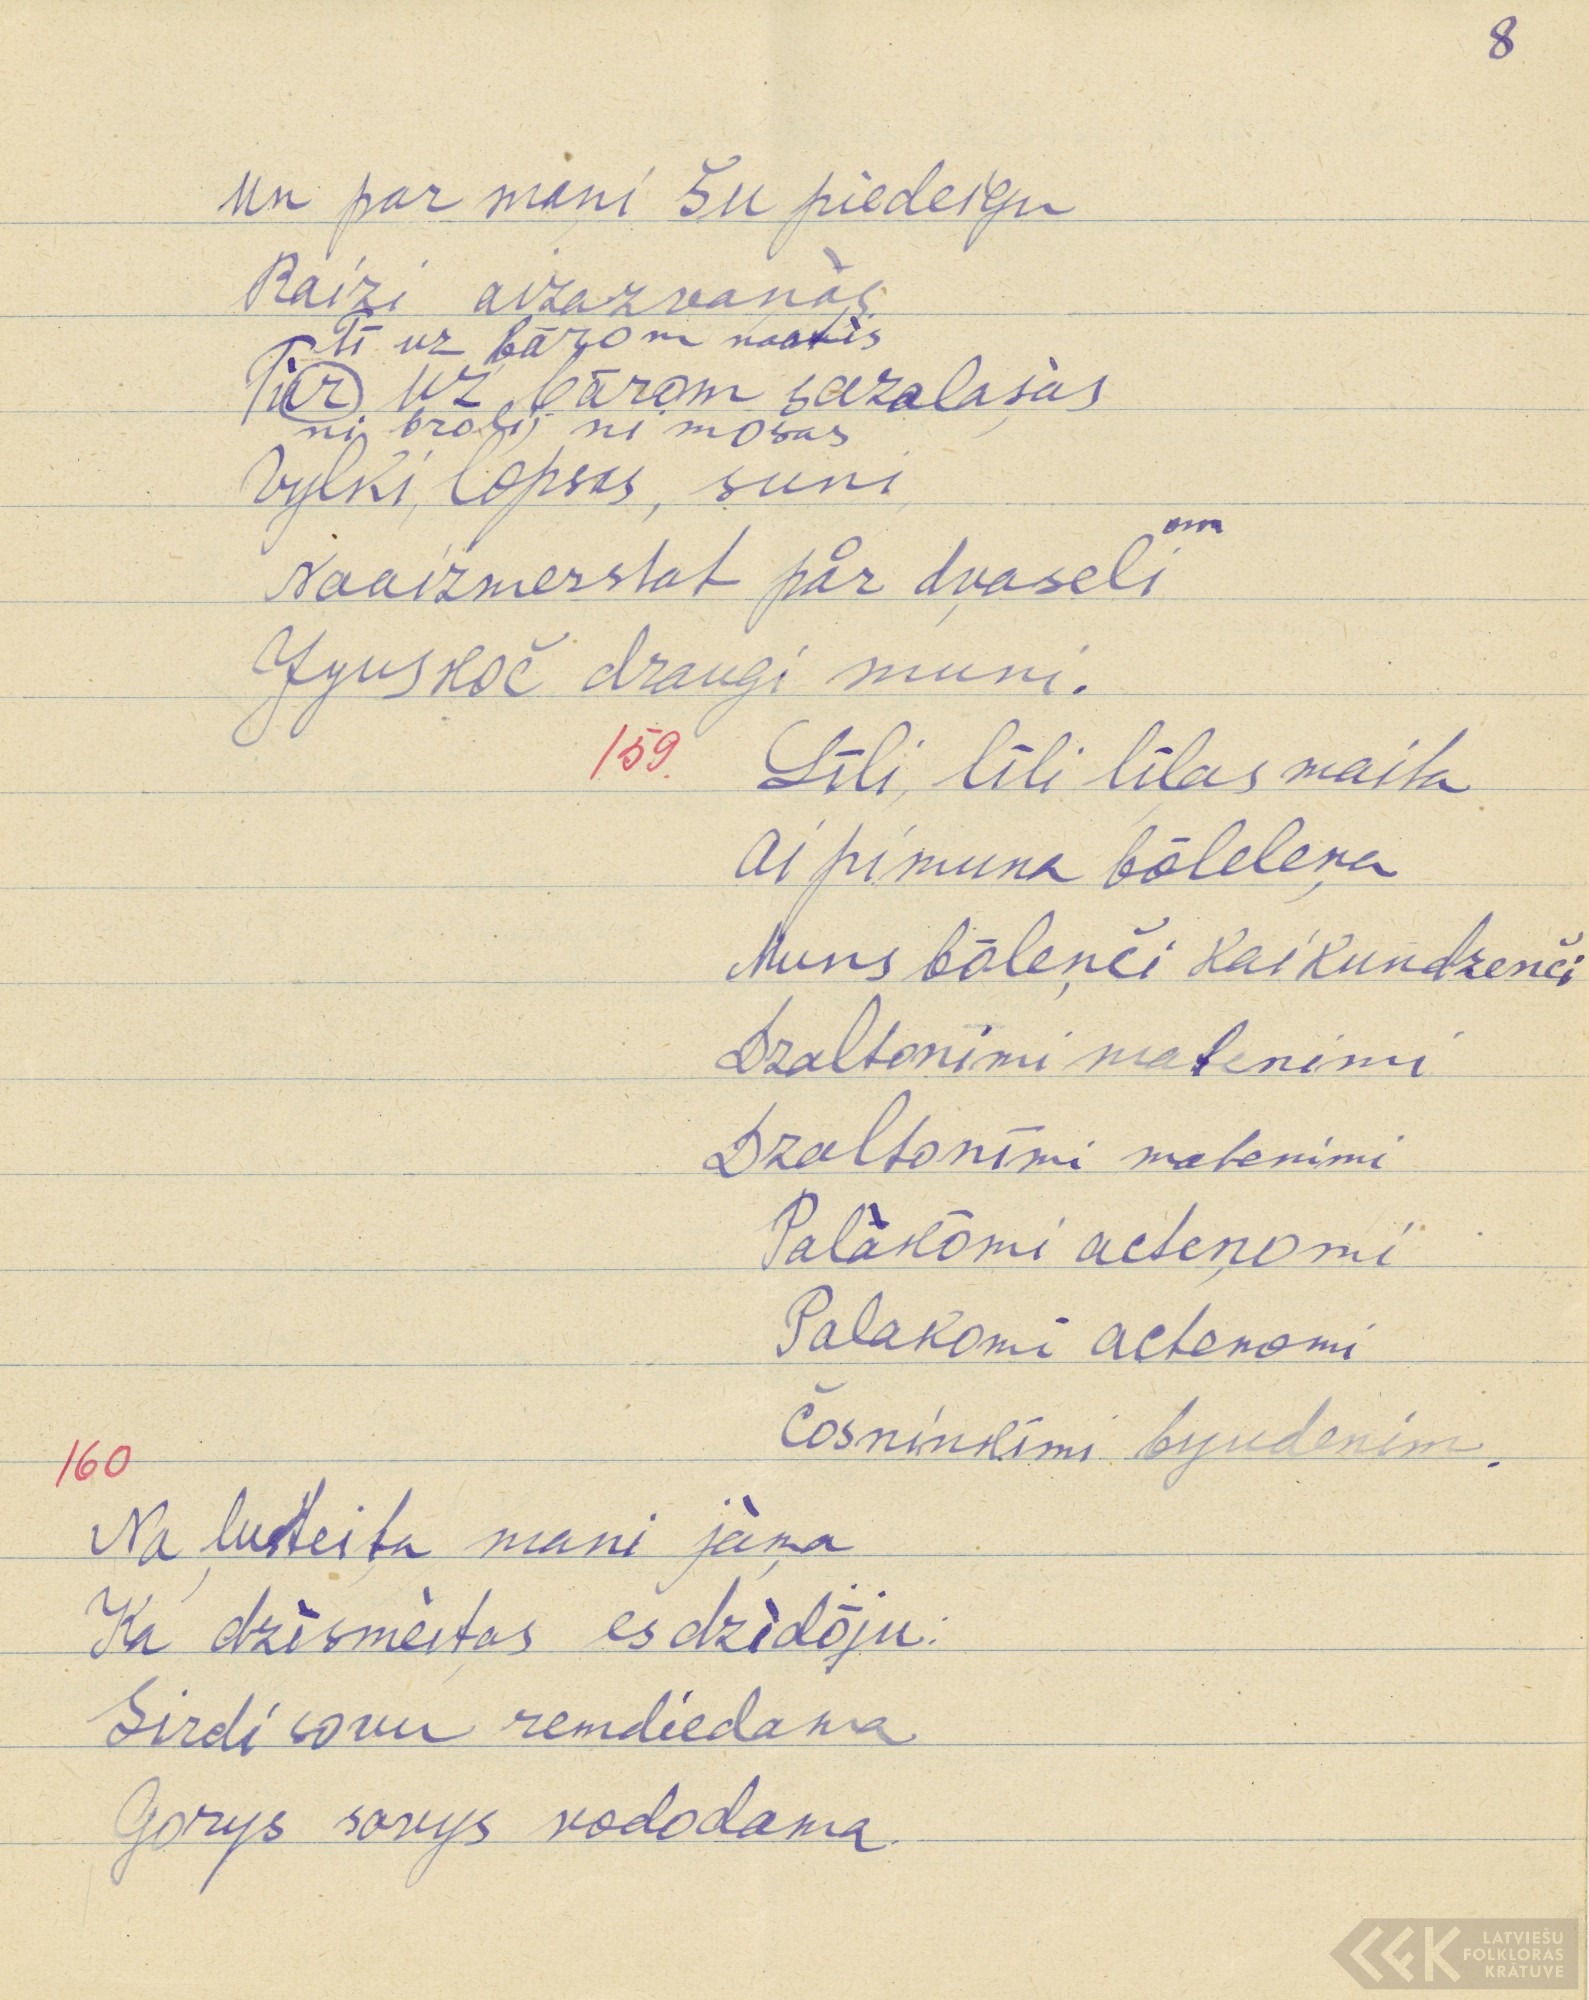 8
Un par mani šu piedeigu
Raizi aizazvanàs
Tī uz bārom naatìs
Tìur uz bārom sazalaşàs
ni broļi, ni mosas
Vylki, lopsas, suni
Naaizmerstat pår dvaseli om
Jyuskoč draugi muni.
159.
Līli, līli līlas maita
Ai pi muna bōleleņa
Muns bōleņči kai kundzenči
Dzaltonimi matenimi
Dzaltonīmi matenimi
Palàkōmi acteņomi
Palakomi actenomi
Čosninkīmi byudenim.
160
Na ļusteiţa mani jàma
Ka dzìsmèiţas es dzìdōju:
Sirdi sovu remdiedama
Gorys sovys vododama.
LATVIEŠU
FOLKLORAS
KRĀTUVE